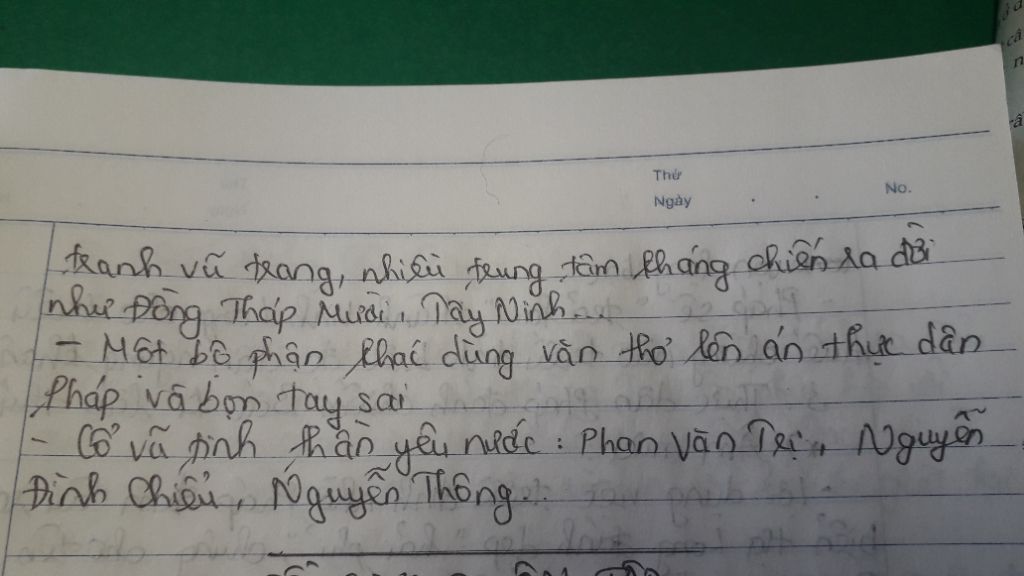 Thứ
Ngày . . No.
tranh vũ trang, nhiều trung tâm kháng chiến ra đời
như Đồng Tháp Mười, Tây Ninh...
- Một bộ phận khác dùng văn thơ lên án thực dân
Pháp và bọn tay sai
- Cổ vũ tinh thần yêu nước: Phan Văn Trị, Nguyễn
Đình Chiểu, Nguyễn Thông...